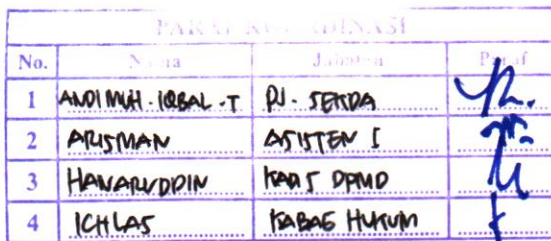 PARAF KOORDINASI
No. Nama Jabatan Paraf
1 ANDI MUH. IQBAL .T PJ. SEKDA
2 ARISMAN ASISTEN I
3 HANARUDDIN KADIS DPMD
4 ICHLAS KABAG HUKUM